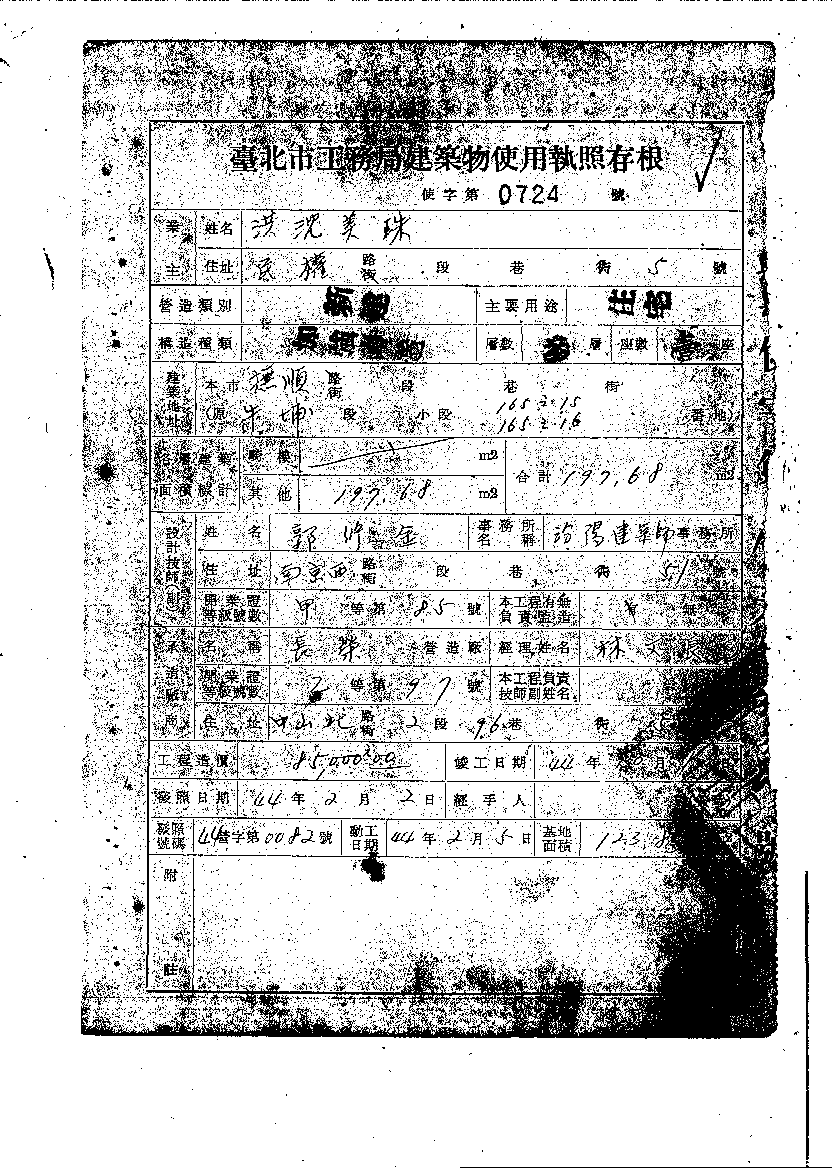 臺北市工務局建築物使用執照存根
使字第 0724 號
業主 姓名 洪沈美珠
住址 民權 路街 段 巷 衖 5 號
營造類別 新建 主要用途 住宅
構造種類 層數 層 座數 座
建築地址 本市 撫順 路街 段 巷 街
(原 段 小段 165-2-15 165-2-16 番地)
騎樓 m2 合計 197.68 m2
面積 計 其他 197.68 m2
設計技師(副) 姓名 郭 金 事務所名稱 汾陽建築師事務所
住址 南京西 路街 段 巷 衖 51 號
開業證等級號數 甲 等第 85 號 本工程有無負責監造
承造廠商 名稱 長榮 營造廠 經理姓名 林
開業證等級號數 等第 97 號 本工程負責技師副姓名
住址 中山北 路街 2 段 96 巷 街
工程造價 85,000.00 竣工日期 44 年 月
發照日期 44 年 2 月 2 日 經手人
發照號碼 44 營字第 0082 號 動工日期 44 年 2 月 5 日 基地面積 123.
附註